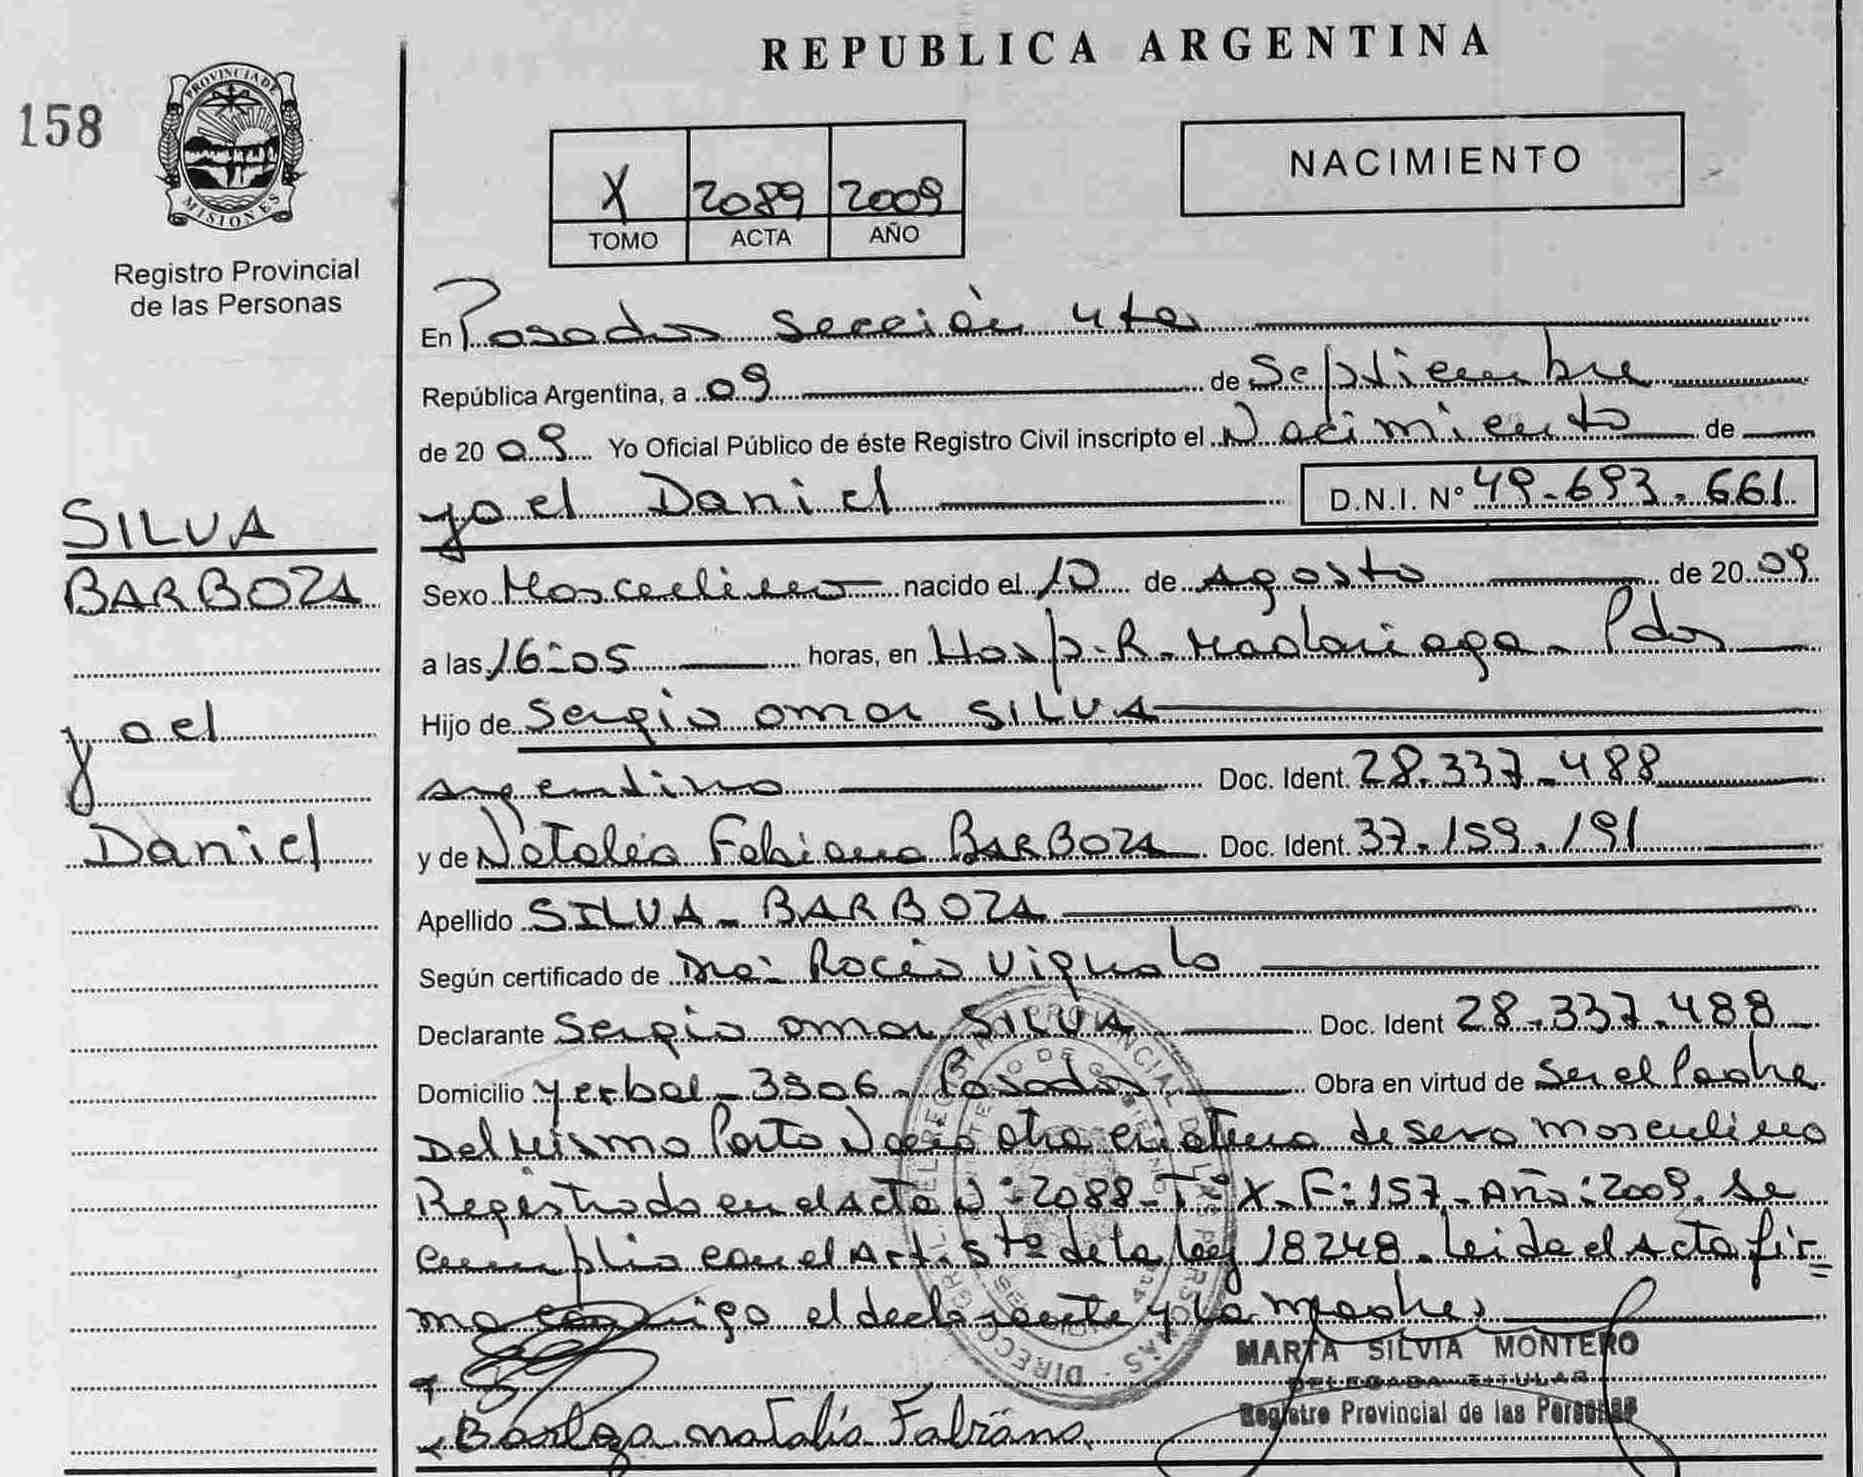 REPUBLICA ARGENTINA
158
PROVINCIA DE MISIONES
Registro Provincial
de las Personas
X 2089 2009
TOMO ACTA AÑO
NACIMIENTO
En Posadas Sección 4ta
República Argentina, a 09 de Septiembre
de 2009 Yo Oficial Público de éste Registro Civil inscripto el Nacimiento de
Yael Daniel D.N.I. N° 49-693-661
SILVA
BARBOZA
Yael
Daniel
Sexo Masculino nacido el 10 de Agosto de 2009
a las 16:05 horas, en Hosp. R. Madariaga - Pdas
Hijo de Sergio Omar SILVA
argentino Doc. Ident. 28.337-488
y de Natalia Fabiana BARBOZA Doc. Ident. 37.159.191
Apellido SILVA - BARBOZA
Según certificado de Dra: Rocío Vignolo
Declarante Sergio Omar SILVA Doc. Ident 28-337-488
Domicilio Yerbal - 3906 - Posadas Obra en virtud de Ser el Padre
Del Mismo Parto Nació otra criatura de sexo masculino
Registrado en el Acta N: 2088 - T° X - F: 157 - Año: 2009. Se
cumplió con el Art. 5to de la ley 18248. Leida el Acta fir=
ma conmigo el declarante y la madre.
MARTA SILVIA MONTERO
DELEGADA TITULAR
Registro Provincial de las Personas
Barboza Natalia Fabiana